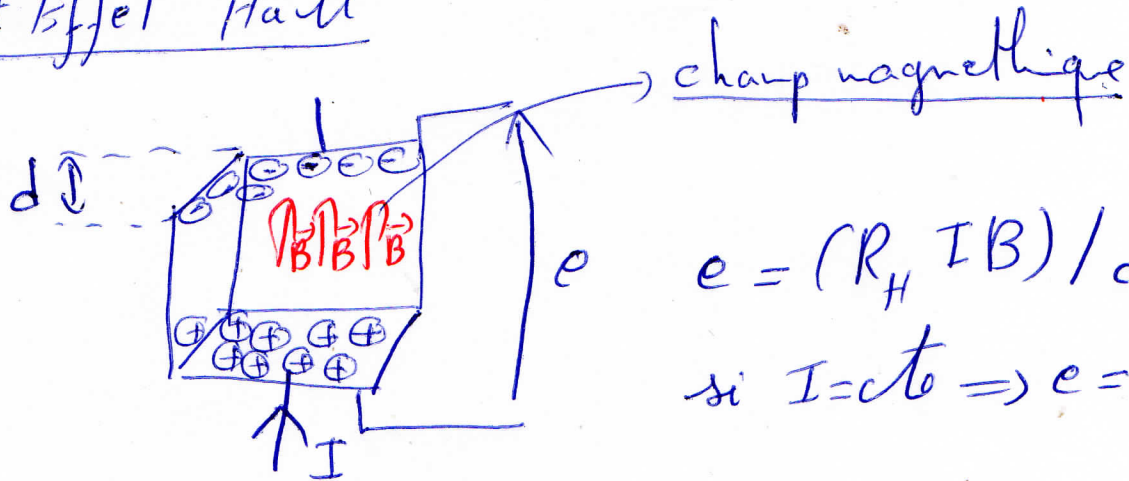 Effet Hall
champ magnethique
d
B B B
e
e = (R_H I B) /
si I = cte => e =
I